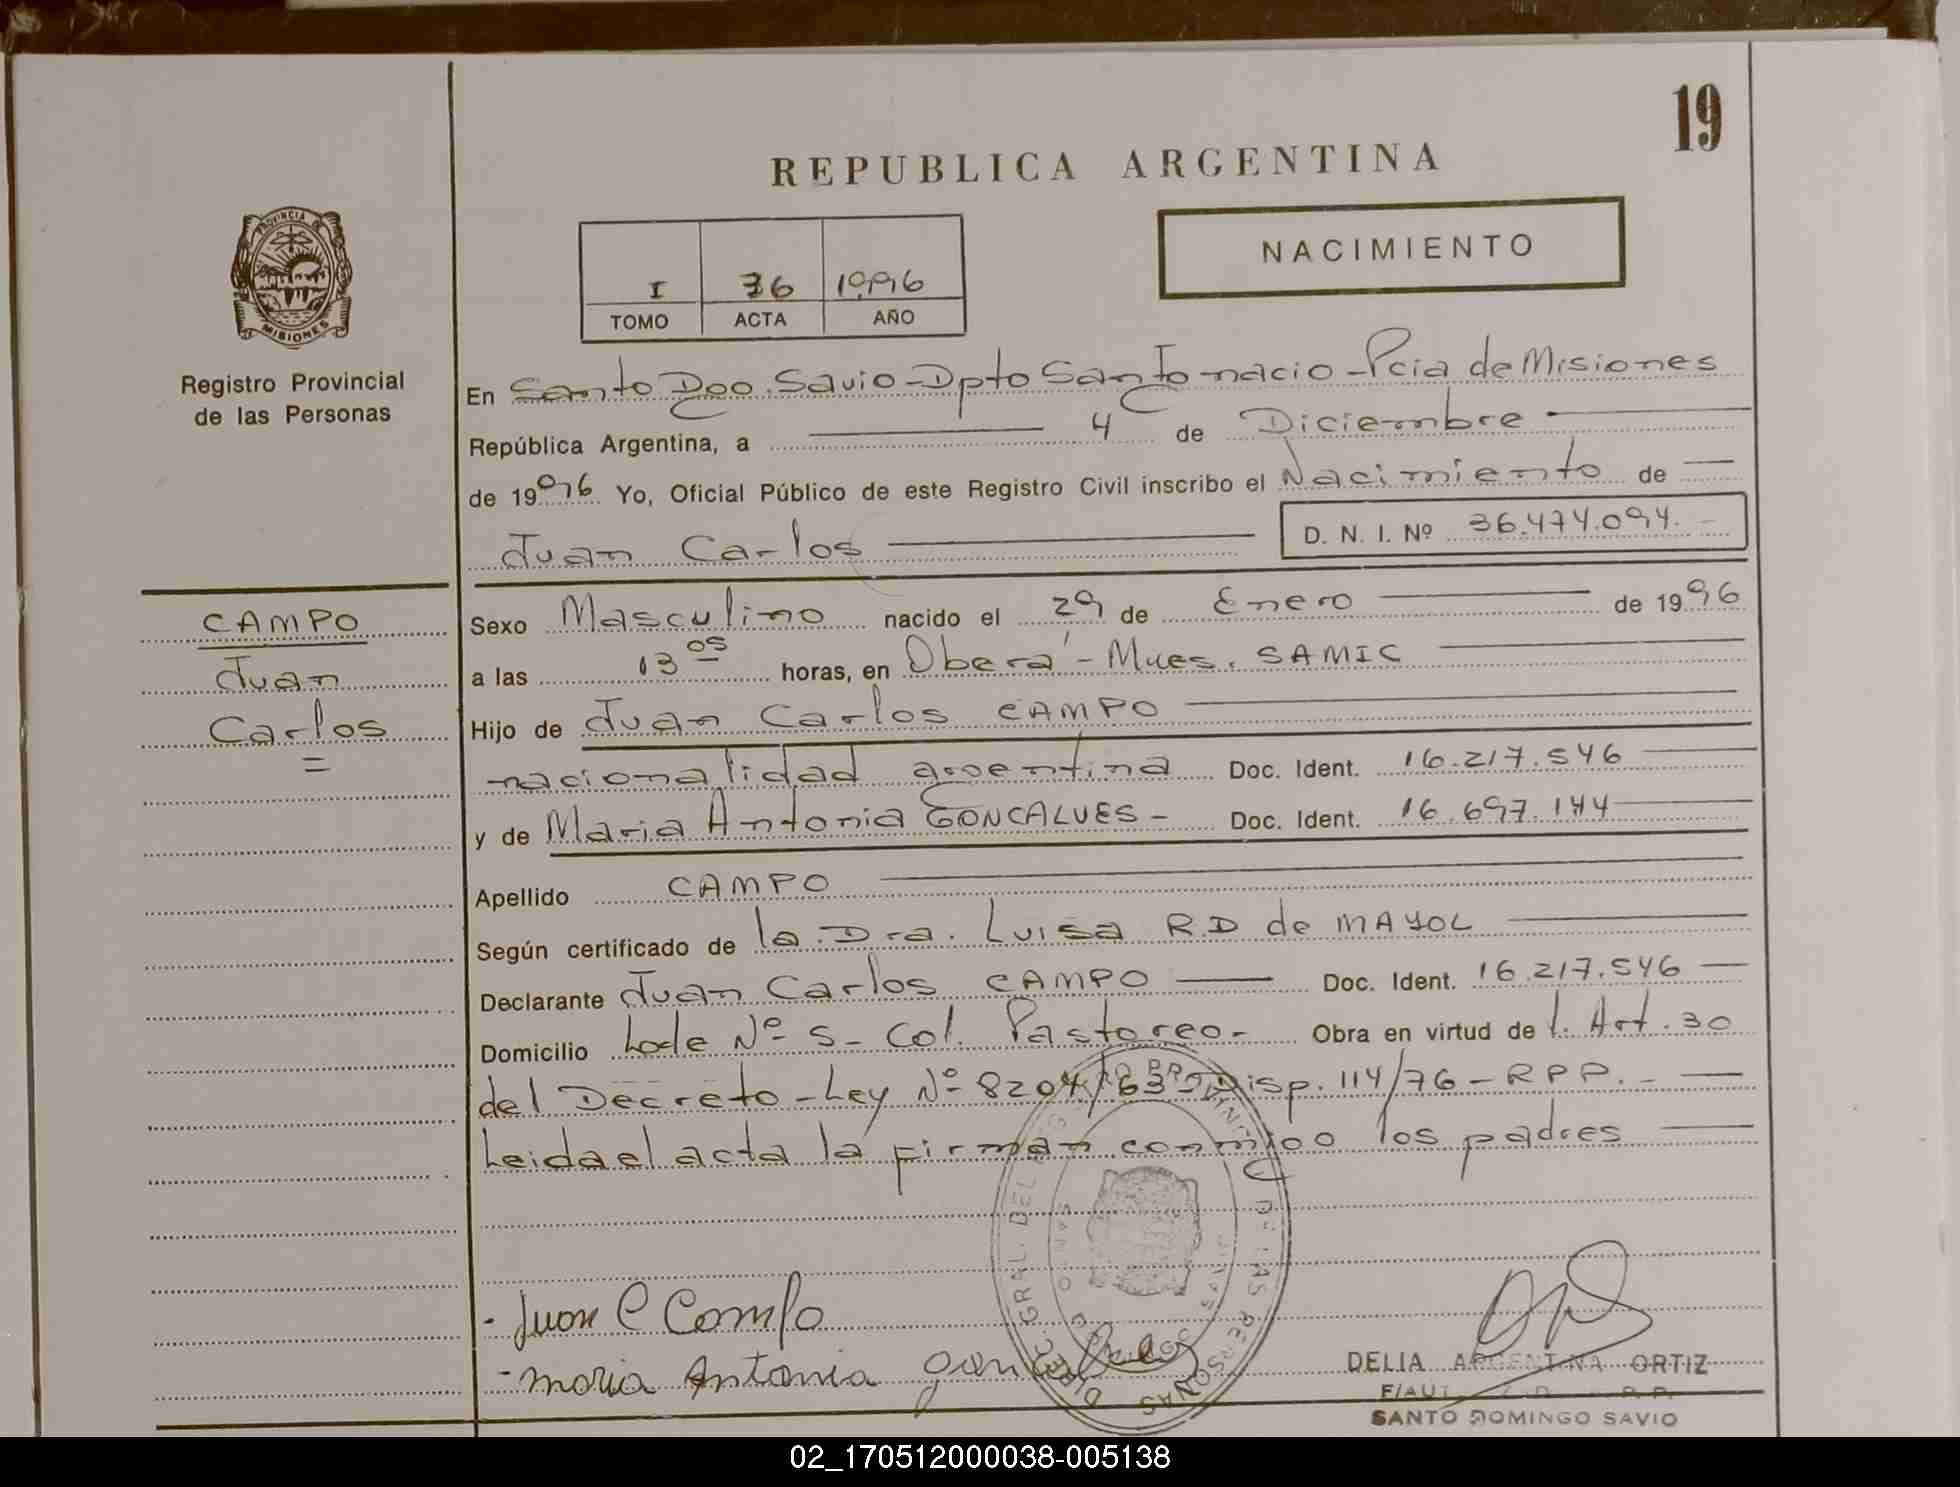 19
REPUBLICA ARGENTINA
NACIMIENTO
I 36 1996
TOMO ACTA AÑO
PROVINCIA
MISIONES
Registro Provincial
de las Personas
En Santo Dgo. Savio - Dpto San Ignacio - Pcia de Misiones
República Argentina, a 4 de Diciembre
de 1996 Yo, Oficial Público de este Registro Civil inscribo el Nacimiento de
Juan Carlos D. N. I. Nº 36.474.094.-
CAMPO
Juan
Carlos
=
Sexo Masculino nacido el 29 de Enero de 1996
a las 13 05 horas, en Oberá - Mnes. SAMIC
Hijo de Juan Carlos CAMPO
nacionalidad argentina Doc. Ident. 16.217.546
y de Maria Antonia GONCALVES - Doc. Ident. 16.697.144
Apellido CAMPO
Según certificado de la Dra. Luisa R.D de MAYOL
Declarante Juan Carlos CAMPO Doc. Ident. 16.217.546
Domicilio Lote Nº 5 - Col. Pastoreo - Obra en virtud del. Art. 30
del Decreto - Ley Nº 8204/63 Disp. 114/76 - RPP. -
Leida el acta la firman conmigo los padres
- Juan C Campo
- Maria Antonia
DELIA ARGENTINA ORTIZ
SANTO DOMINGO SAVIO
02_170512000038-005138